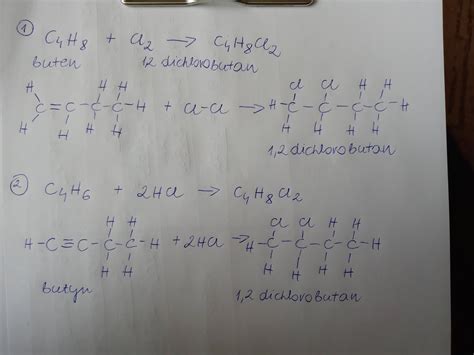 ① C4H8 + Cl2 → C4H8Cl2
buten 1,2 dichlorobutan
H H H
C=C-C-C-H + Cl-Cl → H-C-C-C-C-H
H H H H
Cl Cl H H
H H H H
1,2 dichlorobutan
② C4H6 + 2HCl → C4H8Cl2
H H Cl Cl H H
H-C≡C-C-C-H + 2HCl → H-C-C-C-C-H
H H H H H H
butyn 1,2 dichlorobutan